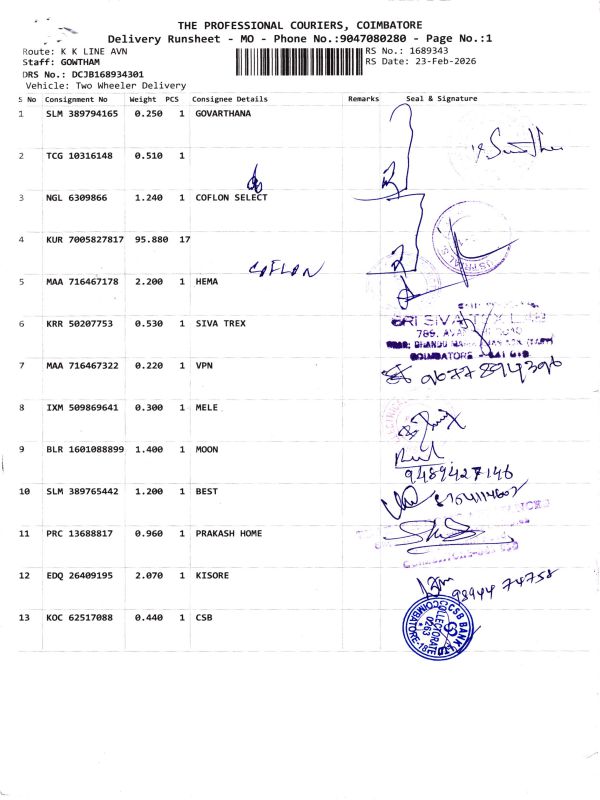 THE PROFESSIONAL COURIERS, COIMBATORE
Delivery Runsheet - MO - Phone No.:9047080280 - Page No.:1
Route: K K LINE AVN
RS No.: 1689343
Staff: GOWTHAM
RS Date: 23-Feb-2026
DRS No.: DCJB168934301
Vehicle: Two Wheeler Delivery
S No Consignment No Weight PCS Consignee Details Remarks Seal & Signature
1 SLM 389794165 0.250 1 GOVARTHANA
2 TCG 10316148 0.510 1
3 NGL 6309866 1.240 1 COFLON SELECT
4 KUR 7005827817 95.880 17
COFLON
5 MAA 716467178 2.200 1 HEMA
6 KRR 50207753 0.530 1 SIVA TREX
SRI SIVA
789, AVA ROAD
COIMBATORE
7 MAA 716467322 0.220 1 VPN
9677894396
8 IXM 509869641 0.300 1 MELE
9 BLR 1601088899 1.400 1 MOON
9489427146
10 SLM 389765442 1.200 1 BEST
11 PRC 13688817 0.960 1 PRAKASH HOME
12 EDQ 26409195 2.070 1 KISORE
98944 74758
13 KOC 62517088 0.440 1 CSB
CSB BANK
COLLECTORATE
0263
COIMBATORE-18